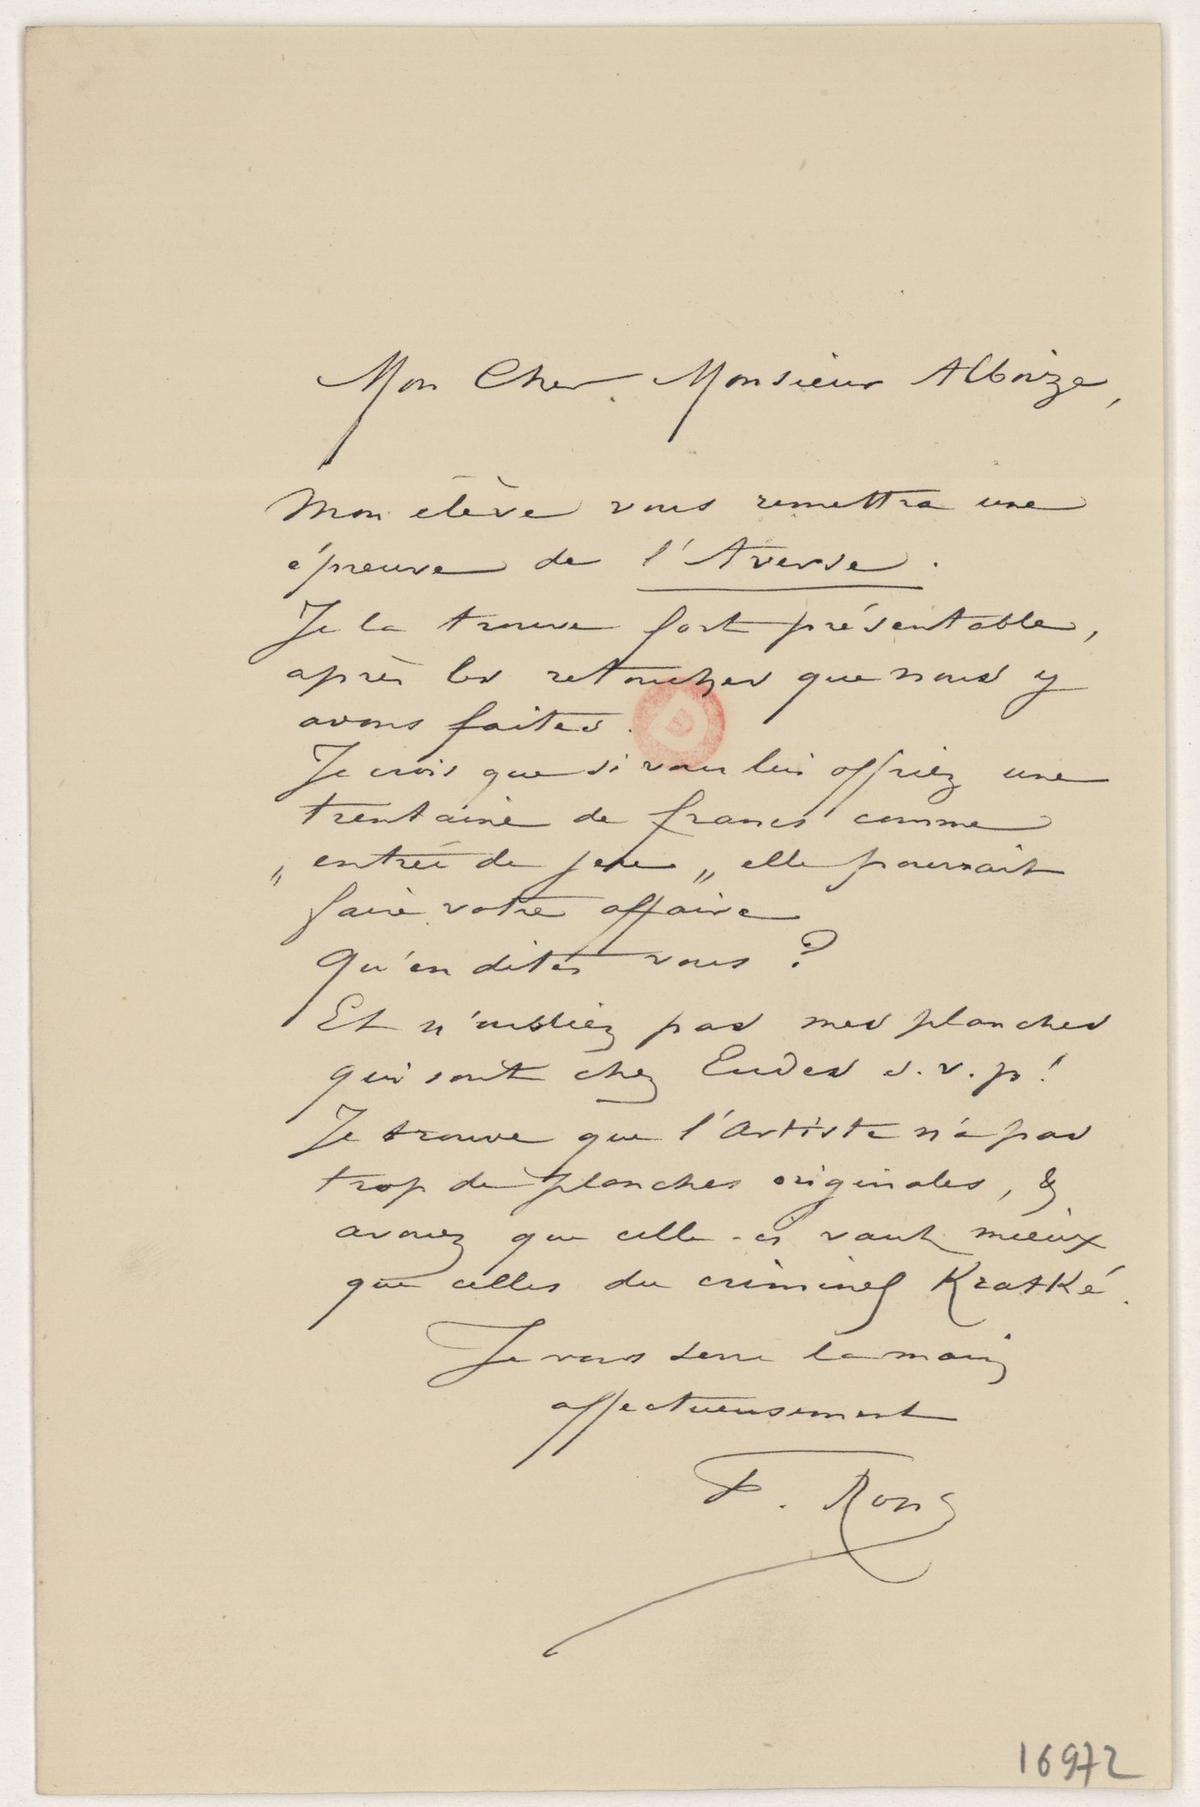 Mon Cher Monsieur Alboize,
Mon élève vous remettra une
épreuve de l'Averse.
Je la trouve fort présentable,
après les retouches que nous y
avons faites.
Je crois que si vous lui offriez une
trentaine de francs comme
„ entrée de jeu „ elle pourrait
faire votre affaire
Qu'en dites vous ?
Et n'oubliez pas mes planches
qui sont chez Eudes s.v.p!
Je trouve que l'Artiste n'a pas
trop de planches originales, &
avouez que celle-ci vaut mieux
que celles du criminel Kratké.
Je vous serre la main
affectueusement
F. Rops
16972